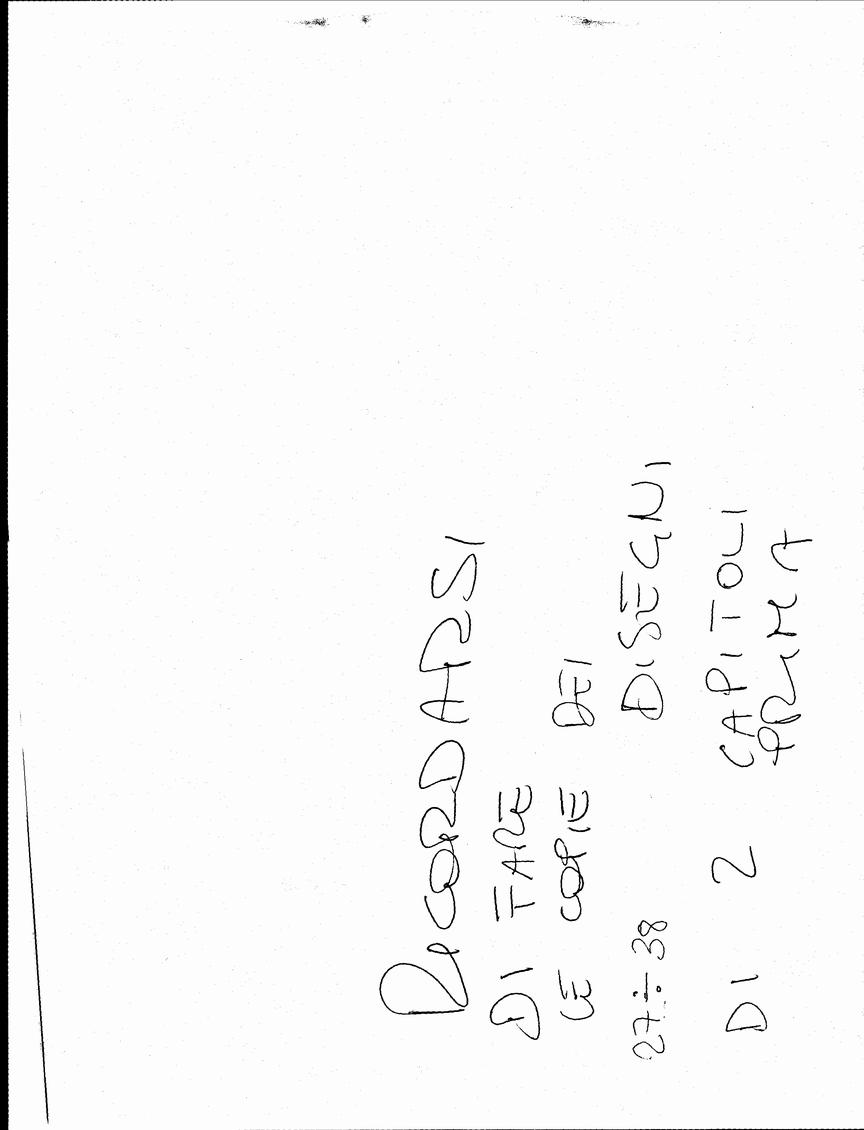 RICORDARSI
DI FARE
LE COPIE DEI
27÷38 DISEGNI
DI 2 CAPITOLI
PRIMA